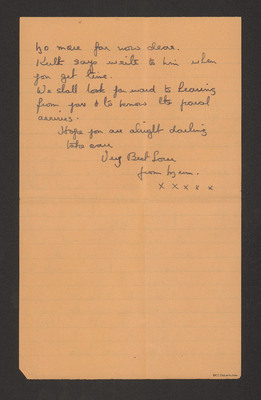 No more for now dear.
Keith says write to him when
you get time.
We shall look forward to hearing
from you & to know the parcel
arrives.
Hope you are alright darling
take care
Very Best Love
from Mum.
x x x x x